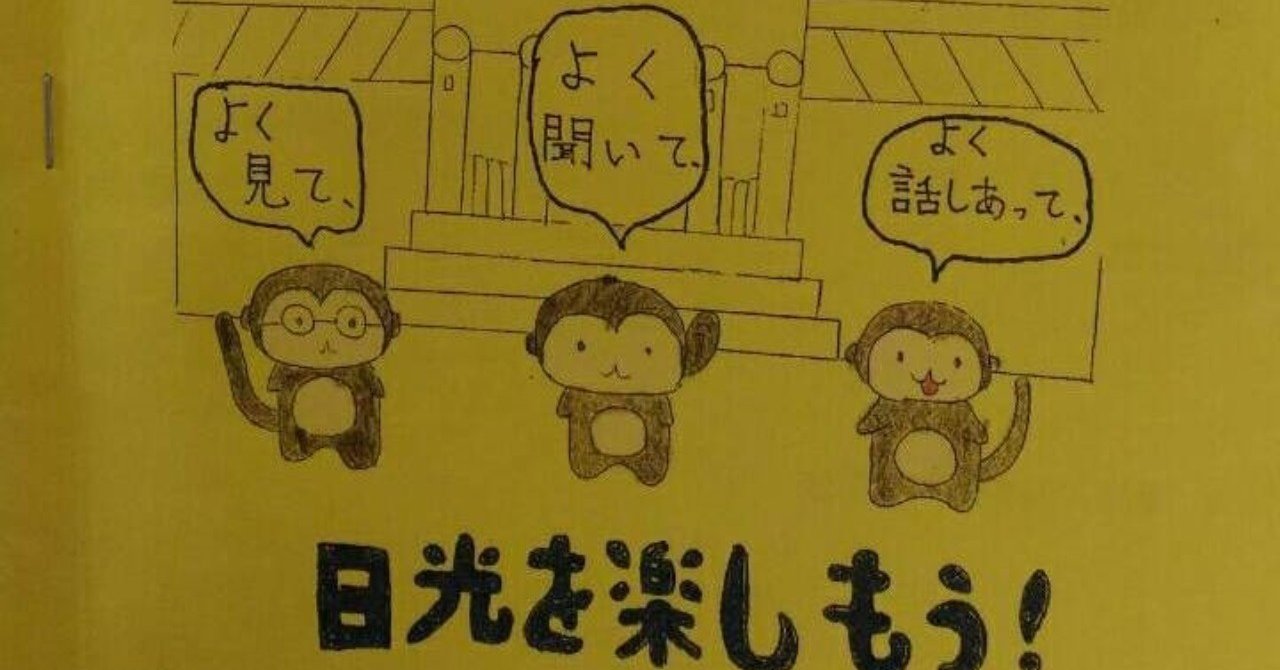 よく
見て、
よく
聞いて、
よく
話しあって、
日光を楽しもう!